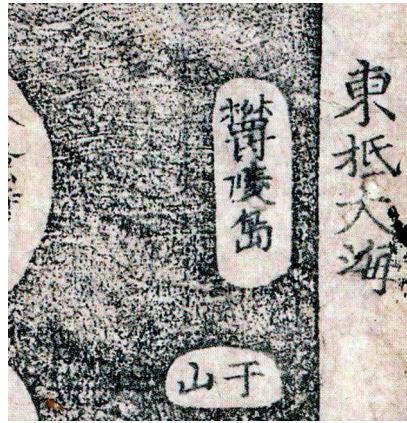 東抵大海
鬱陵島
于山